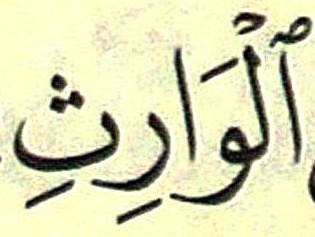 ٱلْوَارِثِ